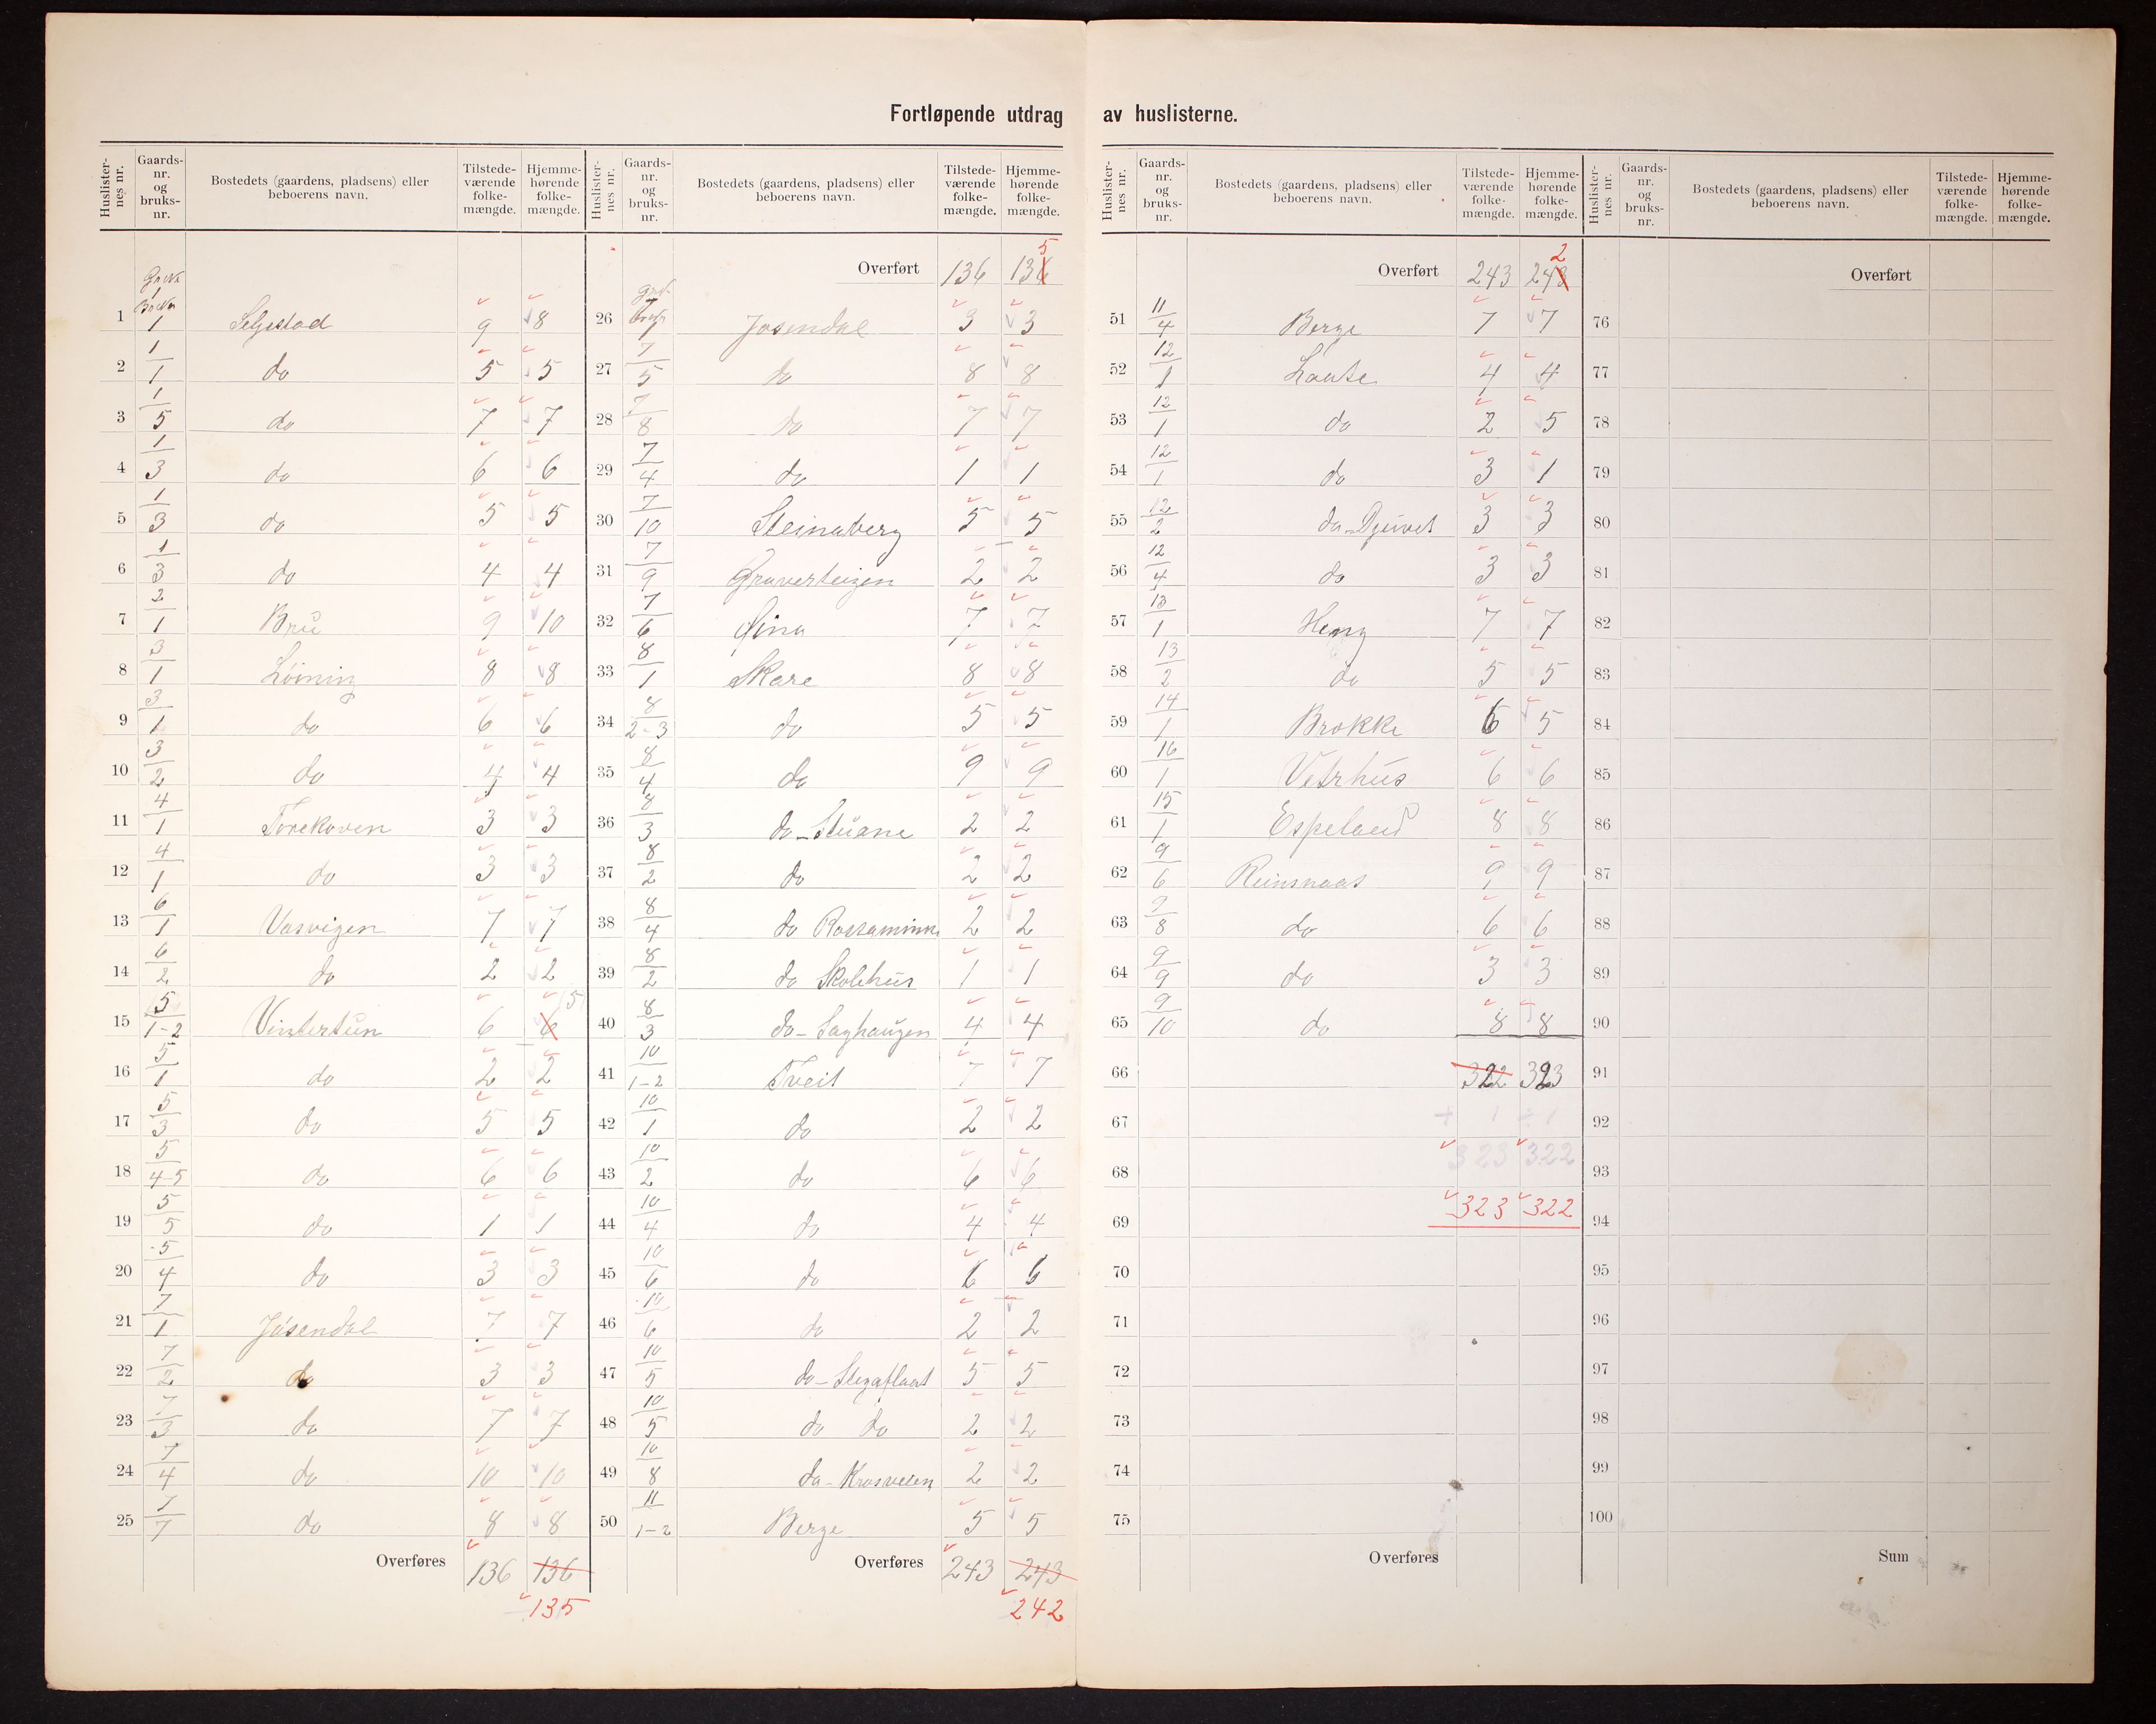 Fortløpende utdrag av huslisterne.
Huslister-nes nr. Gaards-nr. og bruks-nr. Bostedets (gaardens, pladsens) eller beboerens navn. Tilstede-værende folke-mængde. Hjemme-hørende folke-mængde.
1 1/1 Seljestad 9 8
2 1/1 do 5 5
3 1/5 do 7 7
4 1/3 do 6 6
5 1/3 do 5 5
6 1/3 do 4 4
7 2/1 Brú 9 10
8 3/1 Löining 8 8
9 3/1 do 6 6
10 3/2 do 4 4
11 4/1 Torekoven 3 3
12 4/1 do 3 3
13 6/1 Vasvigen 7 7
14 6/2 do 2 2
15 5/1-2 Vintertún 6 6 5
16 5/1 do 2 2
17 5/3 do 5 5
18 5/4-5 do 6 6
19 5/5 do 1 1
20 5/4 do 3 3
21 7/1 Jösendal 7 7
22 7/2 do 3 3
23 7/3 do 7 7
24 7/4 do 10 10
25 7/7 do 8 8
Overføres 136 136
135
Huslister-nes nr. Gaards-nr. og bruks-nr. Bostedets (gaardens, pladsens) eller beboerens navn. Tilstede-værende folke-mængde. Hjemme-hørende folke-mængde.
Overført 136 136 5
26 Jösendal 3 3
27 7/5 do 8 8
28 7/8 do 7 7
29 7/4 do 1 1
30 7/10 Steinaberg 5 5
31 7/9 Graverteigen 2 2
32 7/6 7 7
33 8/1 Skare 8 8
34 8/2-3 do 5 5
35 8/4 do 9 9
36 8/3 do-Stúane 2 2
37 8/2 do 2 2
38 8/4 do 2 2
39 8/2 do Skolehús 1 1
40 8/3 do-Saghaúgen 4 4
41 10/1-2 Tveit 7 7
42 10/1 do 2 2
43 10/2 do 6 6
44 10/4 do 4 4
45 10/6 do 6 6
46 10/6 do 2 2
47 10/5 do 5 5
48 10/5 do do 2 2
49 10/8 do 2 2
50 11/1-2 Berge 5 5
Overføres 243 243
242
Huslister-nes nr. Gaards-nr. og bruks-nr. Bostedets (gaardens, pladsens) eller beboerens navn. Tilstede-værende folke-mængde. Hjemme-hørende folke-mængde.
Overført 243 243 2
51 11/4 Berge 7 7
52 12/1 4 4
53 12/1 do 2 5
54 12/1 do 3 1
55 12/2 do-Djúvet 3 3
56 12/4 do 3 3
57 13/1 7 7
58 13/2 do 5 5
59 14/1 Brokke 6 5
60 16/1 Vetrhús 6 6
61 15/1 Espeland 8 8
62 9/6 Reinsnaas 9 9
63 9/8 do 6 6
64 9/9 do 3 3
65 9/10 do 8 8
66 322 323
67 + 1 ÷ 1
68 323 322
69 323 322
70
71
72
73
74
75
Overføres
Huslister-nes nr. Gaards-nr. og bruks-nr. Bostedets (gaardens, pladsens) eller beboerens navn. Tilstede-værende folke-mængde. Hjemme-hørende folke-mængde.
Overført
76
77
78
79
80
81
82
83
84
85
86
87
88
89
90
91
92
93
94
95
96
97
98
99
100
Sum